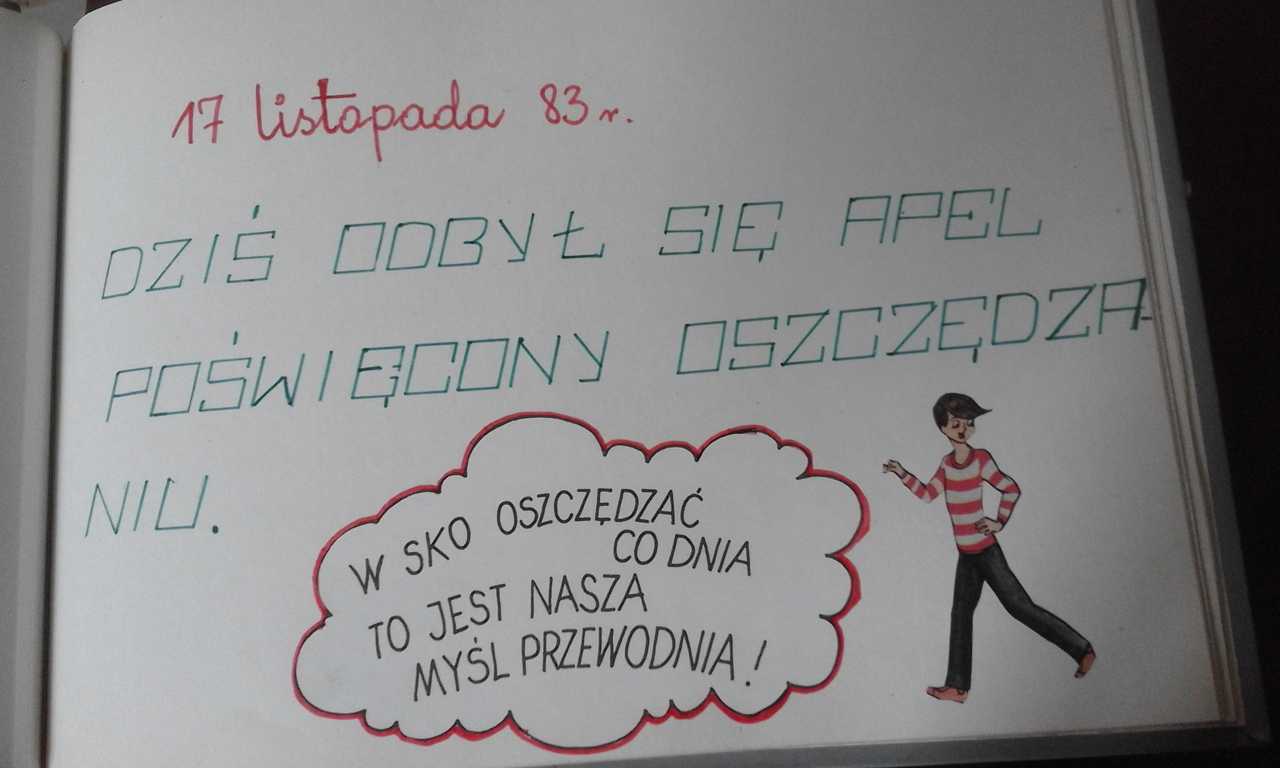 17 listopada 83 r.
DZIŚ ODBYŁ SIĘ APEL
POŚWIĘCONY OSZCZĘDZA-
NIU.
W SKO OSZCZĘDZAĆ
CO DNIA
TO JEST NASZA
MYŚL PRZEWODNIA!